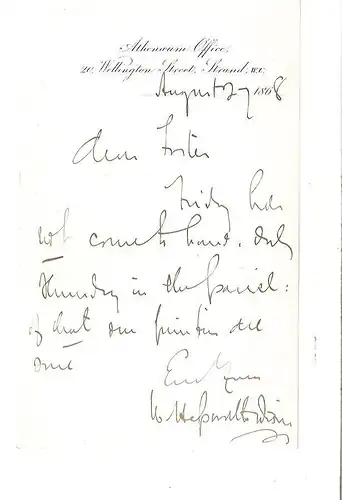 Athenæum Office,
20, Wellington Street, Strand, W.C.
August 27 1868
Dear Foster
Friday has
not come to hand. Only
Thursday in the parcel:
of that our printer
one
W. Hepworth Dixon